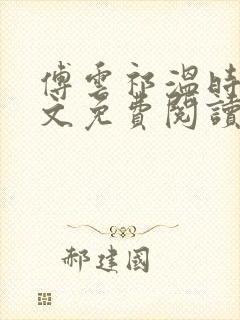 傅雲祁溫時
文免費閱讀
郝建國